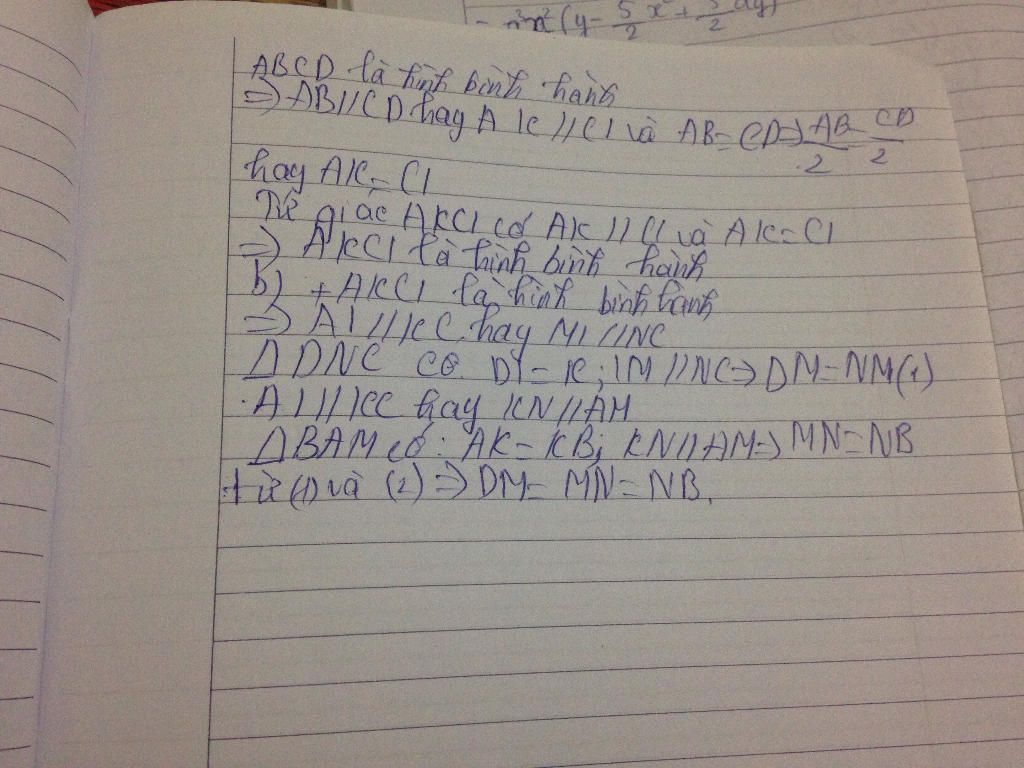 (y - 5/2 x² +
ABCD là hình bình hành
=> AB//CD hay AK//CI và AB=CD=> AB/2 = CD/2
hay AK=CI
Tứ giác AKCI có AK//CI và AK=CI
=> AKCI là hình bình hành
b) + AKCI là hình bình hành
=> AI//KC hay MI//NC
Δ DNC có DI=IC; IM//NC=> DM=NM(1)
. AI//KC hay KN//AM
Δ BAM có: AK=KB; KN//AM=> MN=NB
từ (1) và (2) => DM=MN=NB.